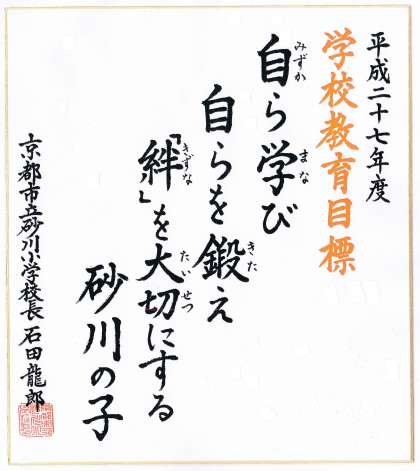 平成二十七年度
学校教育目標
自ら学び
自らを鍛え
「絆」を大切にする
砂川の子
京都市立砂川小学校長 石田龍郎